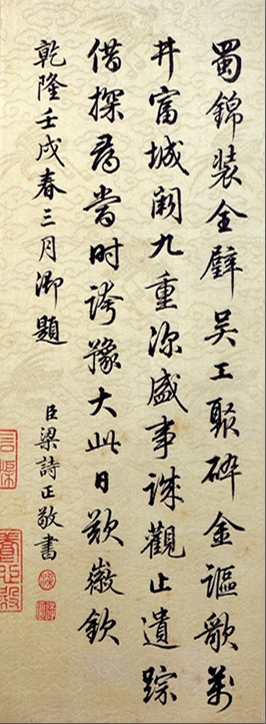 蜀錦裝全璧吳工聚碎金謳歌萬
井富城闕九重深盛事誠觀止遺踪
借探尋當時誇豫大此日歎徽欽
乾隆壬戌春三月御題
臣梁詩正敬書